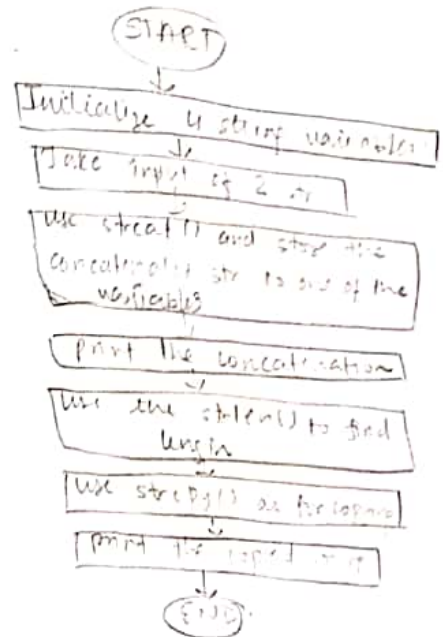 START
Initialize 4 string variables
Take input of 2
use strcat() and store the
concatenated str to one of the
variables
print the concatenation
use the strlen() to find
length
use strcpy() for
print the copied
END